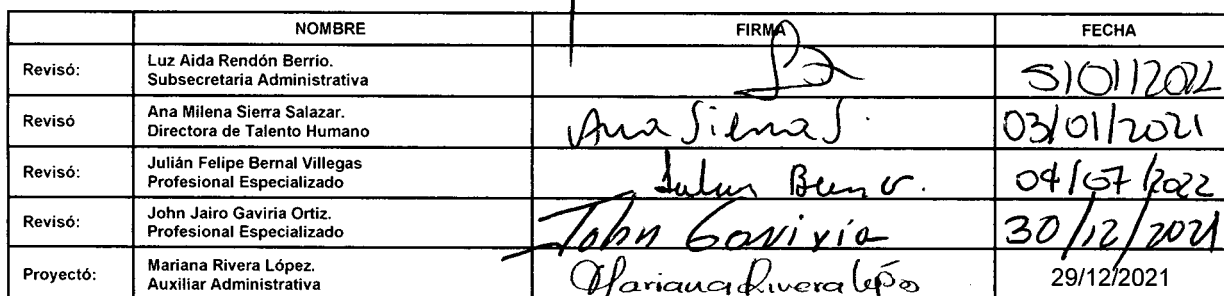 NOMBRE FIRMA FECHA
Revisó: Luz Aida Rendón Berrio.
Subsecretaria Administrativa 5/01/2022
Revisó Ana Milena Sierra Salazar.
Directora de Talento Humano Ana Sierra S. 03/01/2021
Revisó: Julián Felipe Bernal Villegas
Profesional Especializado 04/07/2022
Revisó: John Jairo Gaviria Ortiz.
Profesional Especializado John Gaviria 30/12/2021
Proyectó: Mariana Rivera López.
Auxiliar Administrativa Mariana Rivera López 29/12/2021